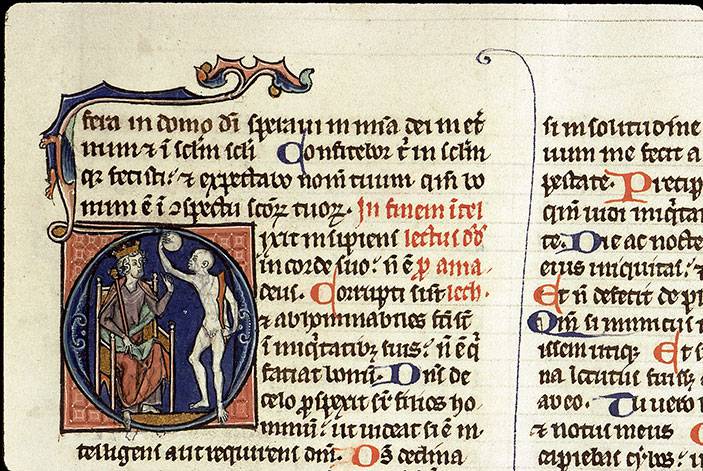 fera in domo dī speraui in mīa dei in et̄
num ⁊ ī sclm̄ scli Confitebor t̄ in sclm̄
qꝛ fecisti ⁊ expectabo nom̄ tuum qm̄ bo
num ē ī ↄspectu scōꝝ tuoꝝ. In finem ītel
ixit insipiens lectus dd̄
in corde suo: n̄ ē p̄ ama
deus. Corrupti st̄ ⁊ lech.
⁊ abhominabiles fc̄i st̄
ī iniq̄tatibꝫ suis: n̄ ē q̄
faciat bonū. Dn̄s de
celo ꝓspexit sr̄ filios ho
minū: ut uideat si ē in
telligens aut requirens dm̄. Ds̄ declina
si in solitudine
uum me fecit a
pestate. Precip
qm̄ uidi iniq̄ta
te. Die ac nocte
eius iniquitas: ⁊
Et n̄ defecit de pl
Qm̄ si inimicus
issem utiqꝫ Et s
na locutus fuiss
abeo. Tu uero
⁊ notus meus
capiebas cibos: